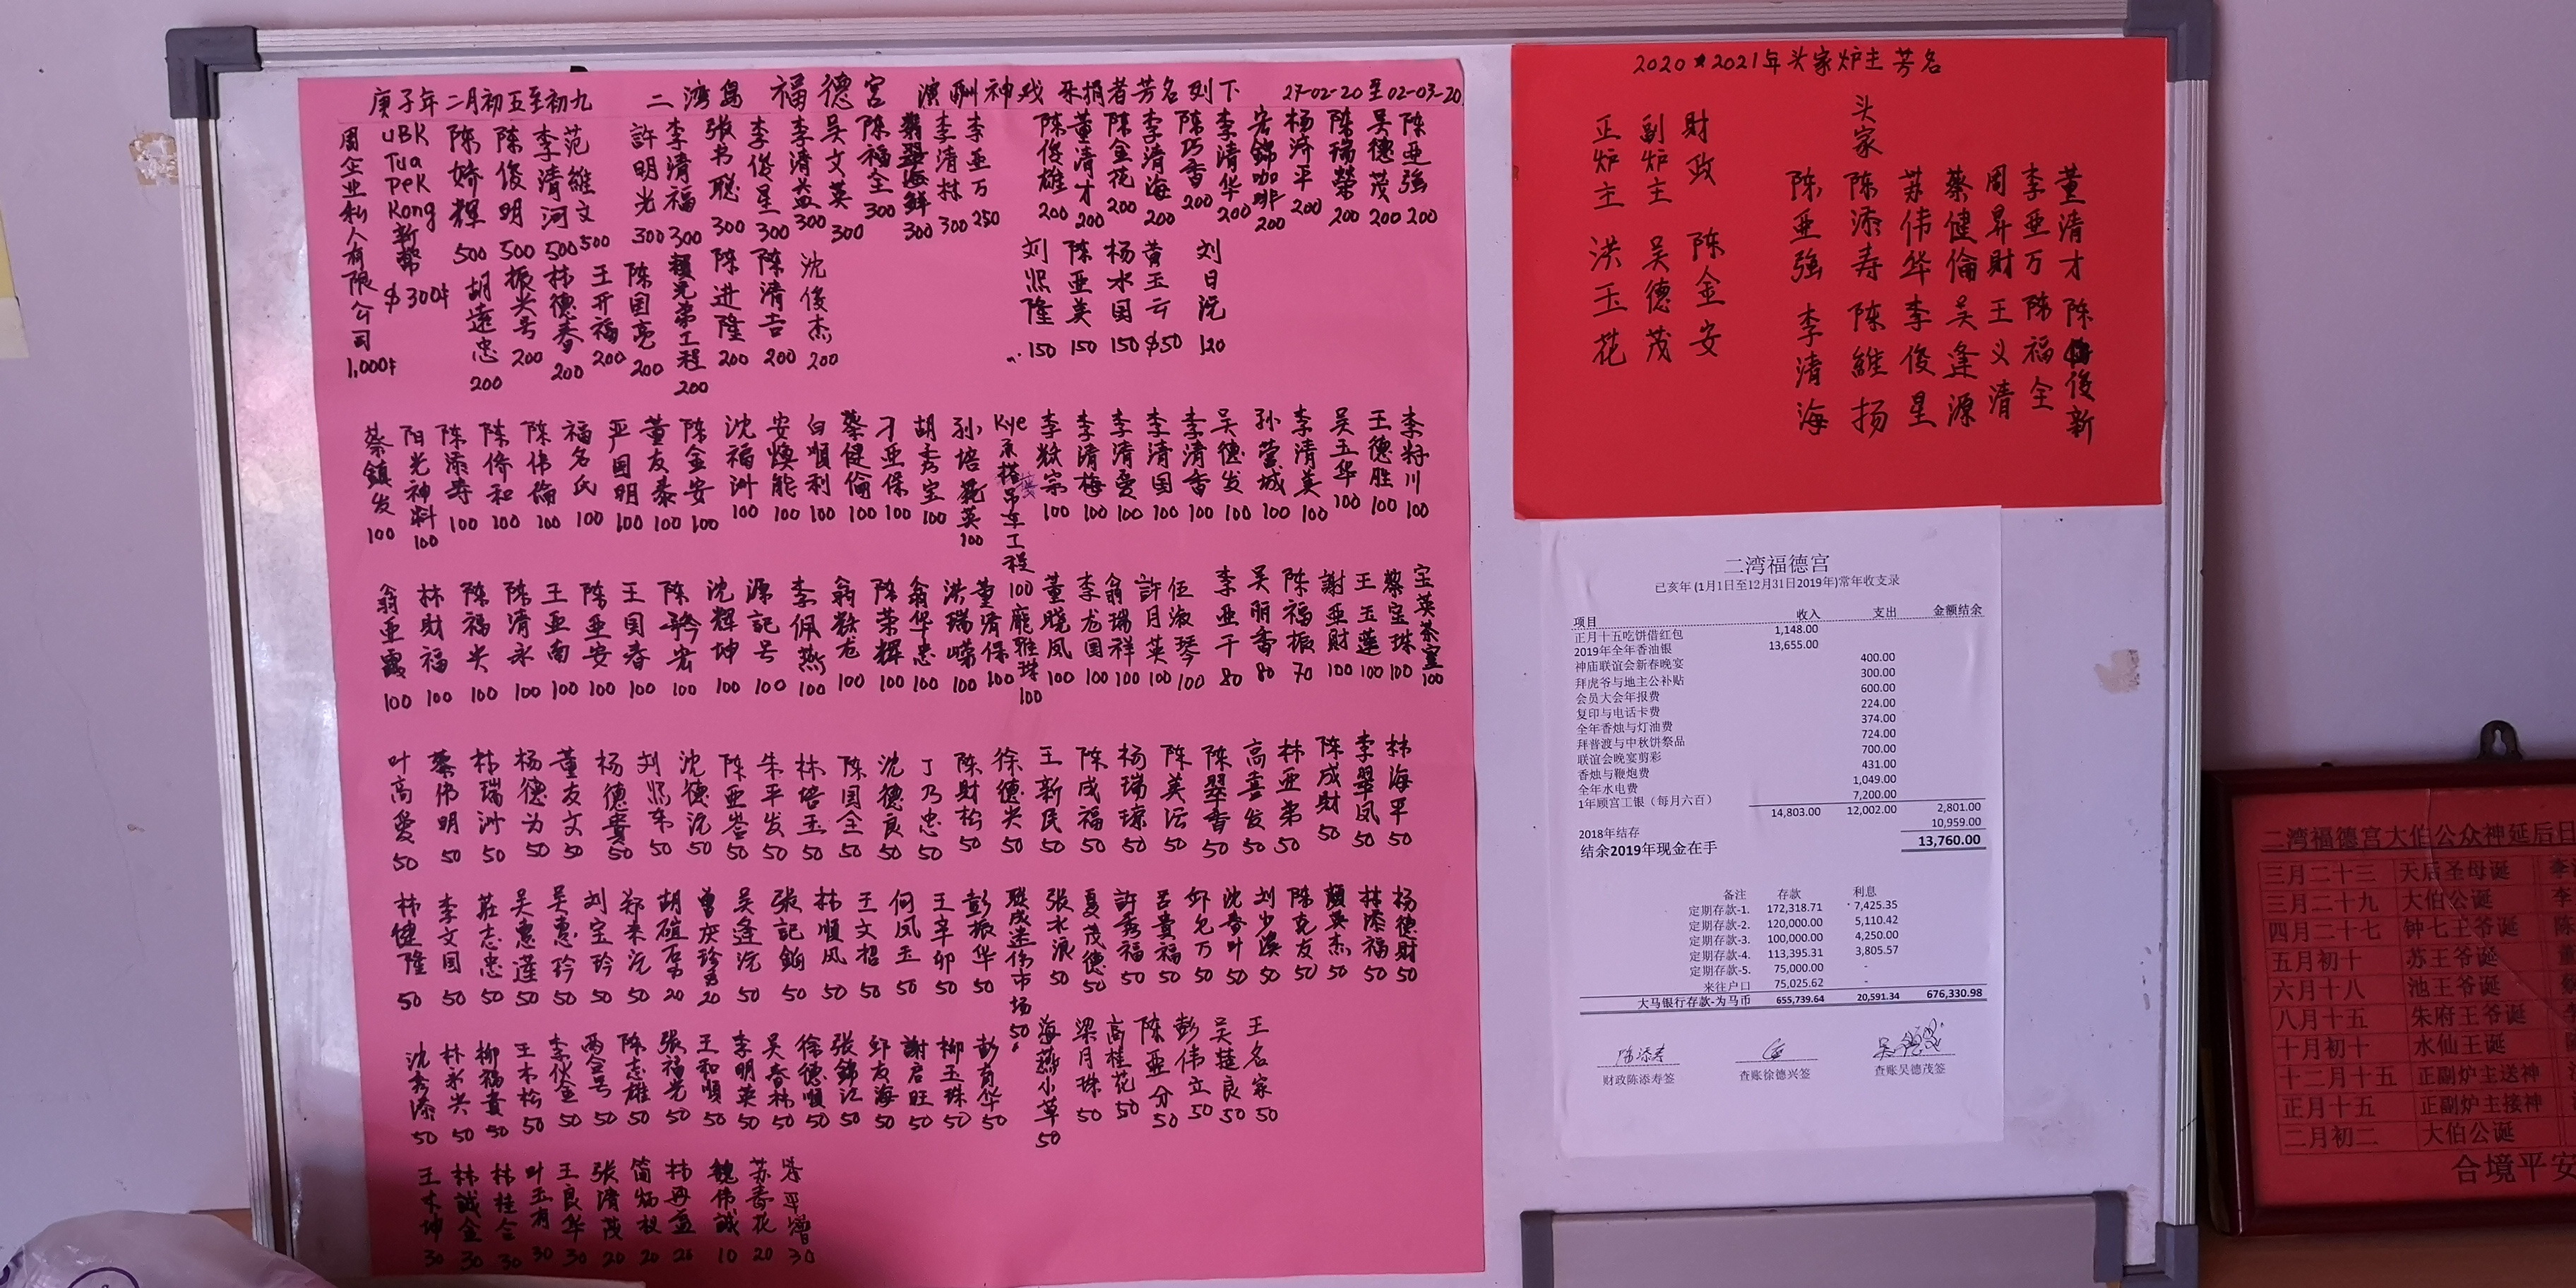 庚子年二月初五至初九 二湾岛 福德宫 演酬神戏 乐捐者芳名列下 27-02-20至02-03-20
周企业私人有限公司 1,000
UBK Tua Pek Kong 新帮 $300
陈娇辉 500
陈俊明 500
李清河 500
范維文 500
許明光 300
李清福 300
张书聪 300
李俊星 300
李清益 300
吴文英 300
陈福全 300
翡翠海鲜 300
李清林 300
李亚万 250
陈俊雄 200
董清才 200
陈金花 200
李清海 200
陈巧香 200
李清华 200
宏錦咖啡 200
杨济平 200
陈瑞榮 200
吴德茂 200
陈亚強 200
胡遠忠 200
振兴号 200
林德春 200
王开福 200
陈国亮 200
賴兄弟工程 200
陈进隆 200
陈清吉 200
沈俊杰 200
刘熙隆 150
陈亚美 150
杨水国 150
黄玉云 $50
刘日沅 120
蔡鎮发 100
阳光神料 100
陈添寿 100
陈倚和 100
陈伟倫 100
福名氏 100
严国明 100
董友泰 100
陈金安 100
沈福洲 100
安煥能 100
白順利 100
蔡健倫 100
刁亚保 100
胡秀宝 100
孙培英 100
李赦宗 100
李清梅 100
李清愛 100
李清国 100
李清香 100
吴德发 100
孙萱城 100
李清英 100
吴玉华 100
王德胜 100
李籽川 100
翁亚露 100
林財福 100
陈福兴 100
陈清永 100
王亚南 100
陈亚安 100
王国春 100
沈輝坤 100
源記号 100
李佩燕 100
翁赦龙 100
陈荣輝 100
翁华忠 100
洪瑞嶸 100
董清保 100
龐雅珠 100
董曉凤 100
李龙国 100
翁瑞祥 100
許月英 100
伍淑琴 100
李亚干 80
吴丽香 80
陈福振 70
謝亚財 100
王玉蓮 100
黎宝珠 100
宝英茶室 100
叶高愛 50
蔡伟明 50
林瑞洲 50
杨德为 50
董友文 50
杨德貴 50
刘熙东 50
沈德沅 50
陈亚峇 50
朱平发 50
林培玉 50
陈国全 50
沈德良 50
丁乃忠 50
陈財松 50
徐德兴 50
王新民 50
陈成福 50
杨瑞琼 50
陈英沄 50
陈翠香 50
高喜发 50
林亚弟 50
陈成財 50
李翠凤 50
林海平 50
林健隆 50
李文国 50
莊志忠 50
吴惠蓮 50
吴惠玲 50
刘宝玲 50
郑来沅 50
吴逢沅 50
張記 50
林順风 50
王文招 50
何凤玉 50
王辛卯 50
彭振华 50
联成迷伤市场 50
張水浪 50
夏茂德 50
許秀福 50
呂貴福 50
邱乞万 50
沈香叶 50
刘少溪 50
陈克友 50
顏英杰 50
林添福 50
杨德財 50
沈秀添 50
林永兴 50
柳福貴 50
王木松 50
李伙金 50
两合号 50
陈志雄 50
張福光 50
王和順 50
李明英 50
吴春林 50
徐德順 50
张錦江 50
邱友海 50
謝启旺 50
柳玉珠 50
彭育华 50
海燕小草 50
梁月珠 50
高桂花 50
陈亚分 50
彭伟立 50
吴莲良 50
王名家 50
王木坤 30
林誠金 30
林桂合 30
叶玉有 30
王良华 30
張清茂 20
简炳权 20
林再益 20
魏伟誠 10
苏香花 20
2020★2021年头家炉主芳名
正炉主 洪玉花
副炉主 吴德茂
財政 陈金安
头家
陈亚强 李清海
陈添寿 陈維扬
苏伟华 李俊星
蔡健倫 吴逢源
周昇財 王义清
李亚万 陈福全
董清才 陈俊新
二湾福德宫
已亥年 (1月1日至12月31日2019年)常年收支录
项目 收入 支出 金额结余
正月十五吃饼借红包 1,148.00
2019年全年香油银 13,655.00
神庙联谊会新春晚宴 400.00
拜虎爷与地主公补贴 300.00
会员大会年报费 600.00
复印与电话卡费 224.00
全年香烛与灯油费 374.00
拜普渡与中秋饼祭品 724.00
联谊会晚宴剪彩 700.00
香烛与鞭炮费 431.00
全年水电费 1,049.00
1年顾宫工银（每月六百） 7,200.00
14,803.00 12,002.00 2,801.00
2018年结存 10,959.00
结余2019年现金在手 13,760.00
备注 存款 利息
定期存款-1. 172,318.71 7,425.35
定期存款-2. 120,000.00 5,110.42
定期存款-3. 100,000.00 4,250.00
定期存款-4. 113,395.31 3,805.57
定期存款-5. 75,000.00 -
来往户口 75,025.62 -
大马银行存款-为马币 655,739.64 20,591.34 676,330.98
财政陈添寿签 查账徐德兴签 查账吴德茂签
二湾福德宫大伯公众神延后日
三月二十三 天后圣母诞 李
三月二十九 大伯公诞 李
四月二十七 钟七王爷诞 陈
五月初十 苏王爷诞
六月十八 池王爷诞
八月十五 朱府王爷诞
十月初十 水仙王诞
十二月十五 正副炉主送神
正月十五 正副炉主接神
二月初二 大伯公诞
合境平安